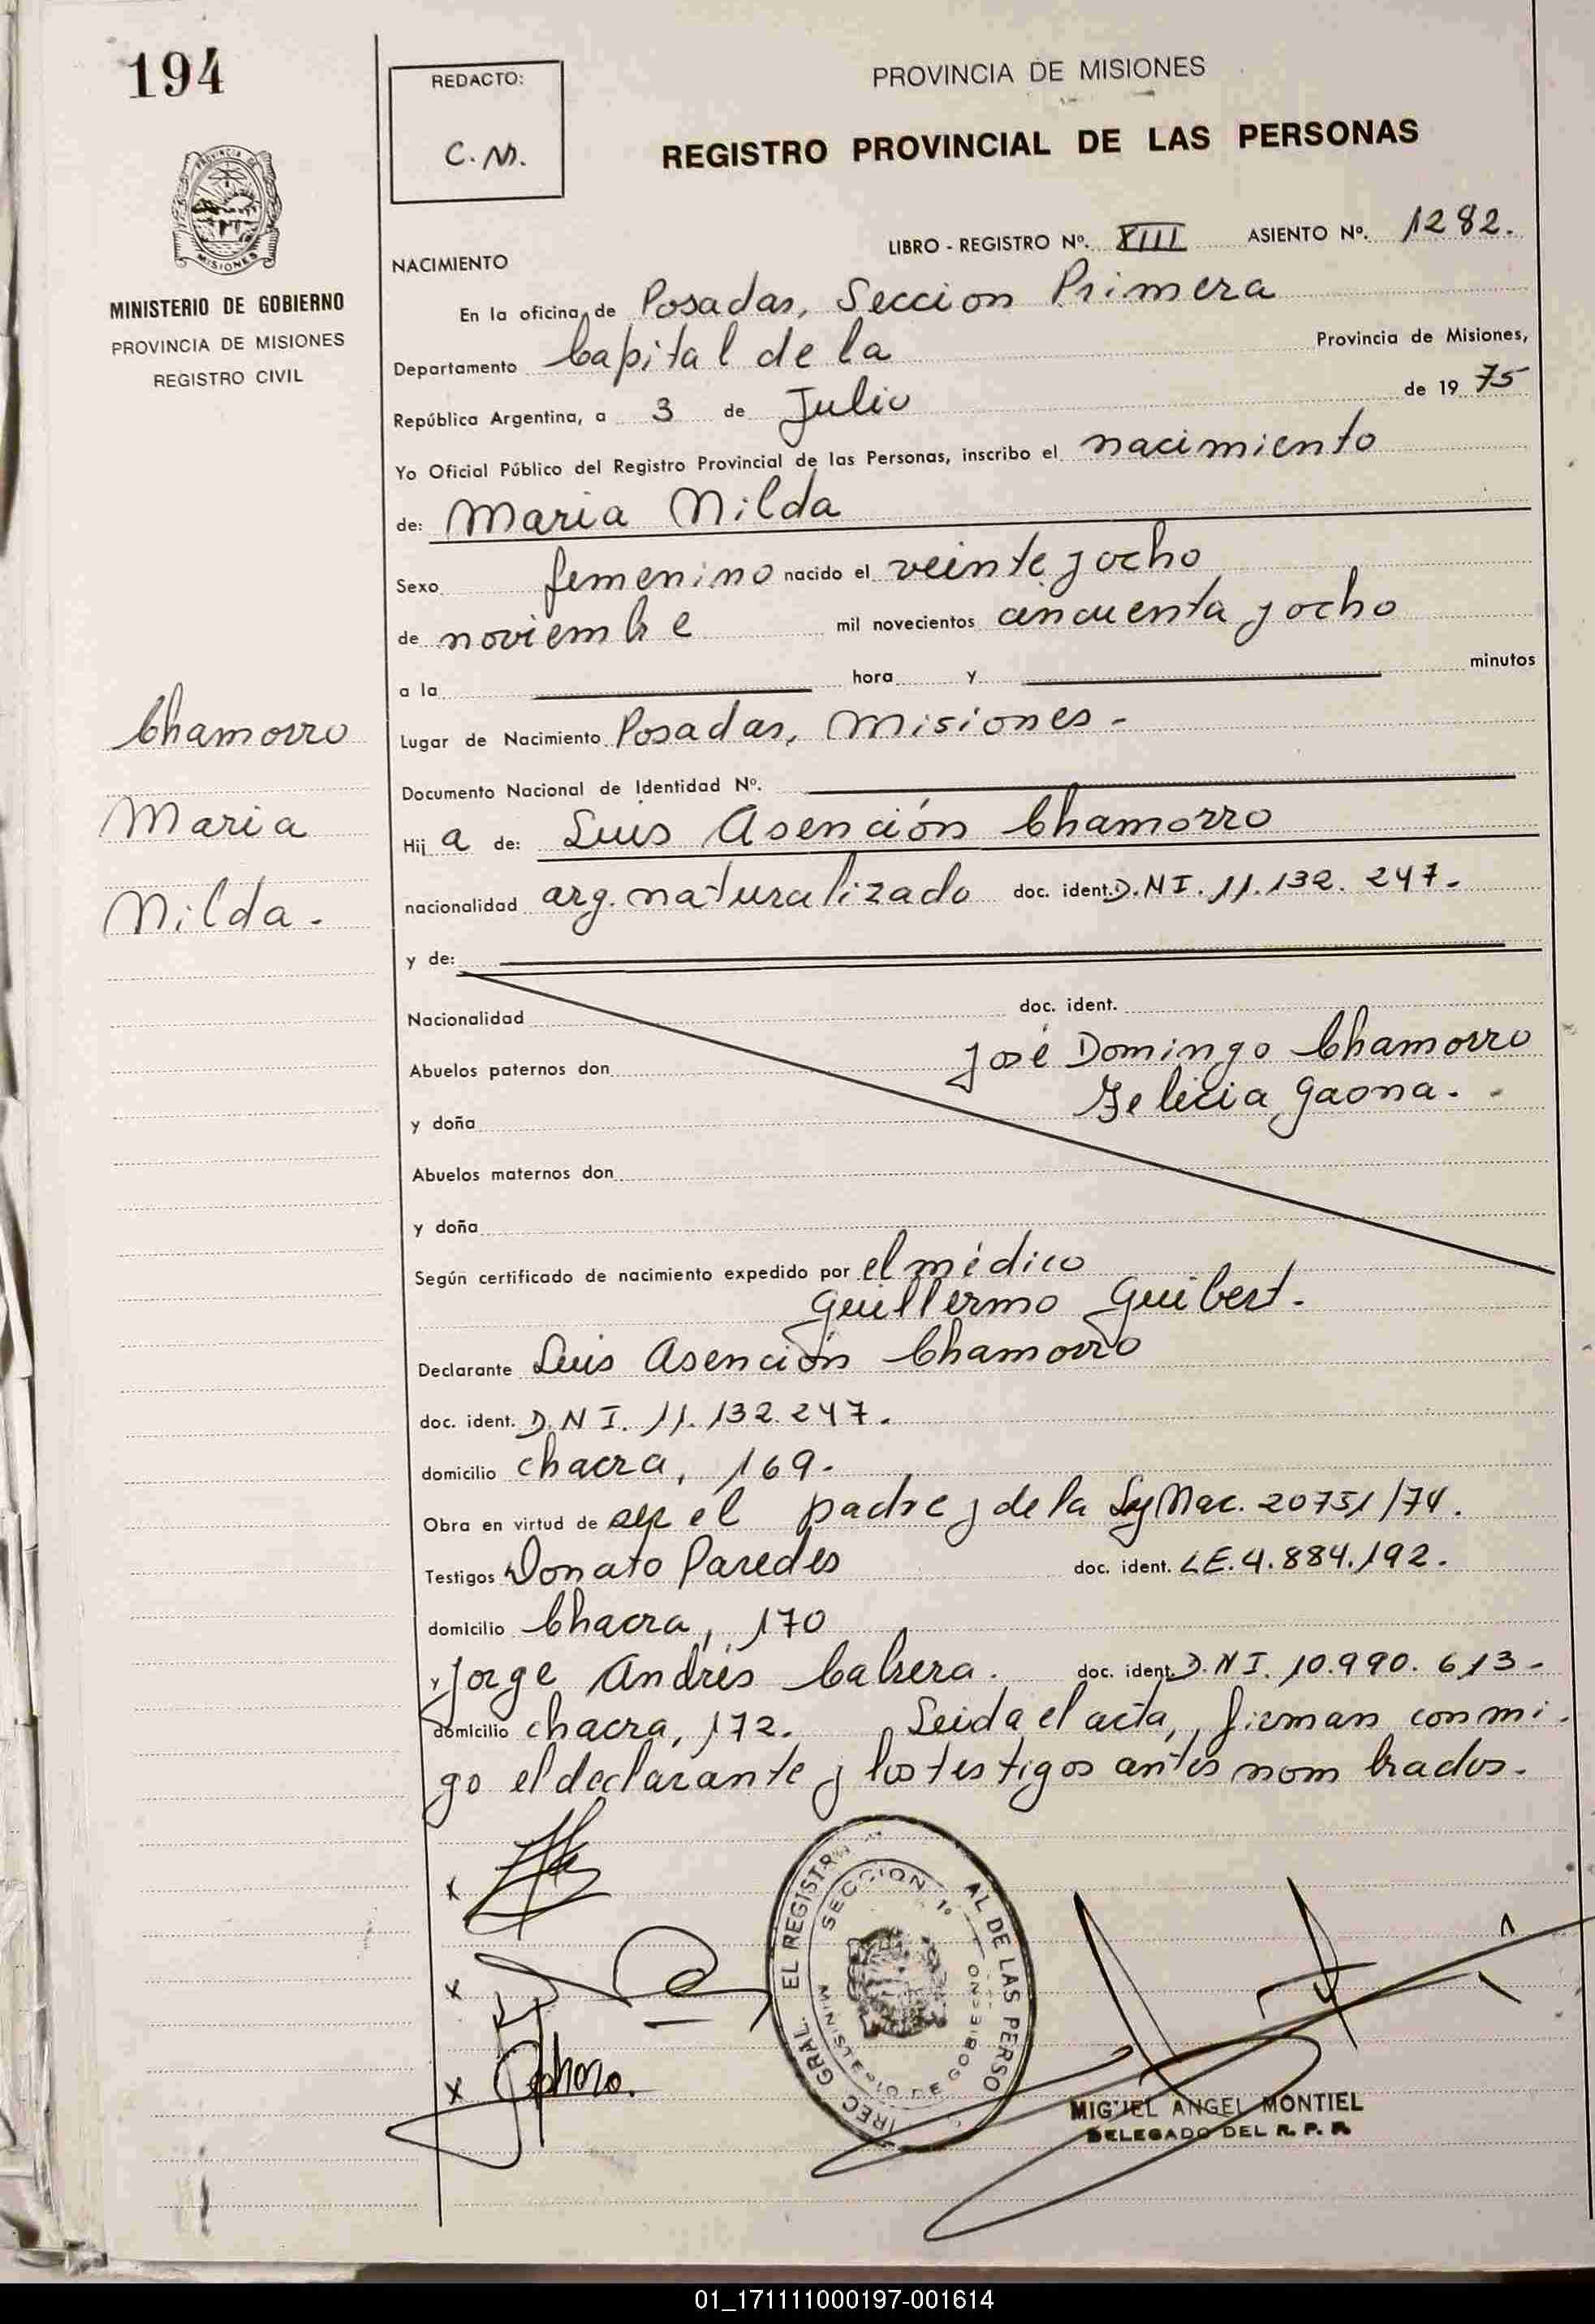 194
REDACTO:
C. M.
PROVINCIA DE MISIONES
REGISTRO PROVINCIAL DE LAS PERSONAS
PROVINCIA DE
MISIONES
MINISTERIO DE GOBIERNO
PROVINCIA DE MISIONES
REGISTRO CIVIL
LIBRO - REGISTRO Nº. XIII ASIENTO Nº. 1282.
NACIMIENTO
En la oficina de Posadas, Seccion Primera
Departamento Capital de la Provincia de Misiones,
República Argentina, a 3 de Julio de 19 75
Yo Oficial Público del Registro Provincial de las Personas, inscribo el nacimiento
de: Maria Nilda
Sexo femenino nacido el veinte y ocho
de noviembre mil novecientos cincuenta y ocho
a la hora y minutos
Chamorro
Maria
Nilda.
Lugar de Nacimiento Posadas, Misiones -
Documento Nacional de Identidad Nº.
Hij a de: Luis Asención Chamorro
nacionalidad arg. naturalizado doc. ident. D.N I. 11.132. 247.
y de:
Nacionalidad doc. ident.
Abuelos paternos don José Domingo Chamorro
y doña Felicia Gaona.
Abuelos maternos don
y doña
Según certificado de nacimiento expedido por el médico
Guillermo Guibert.
Declarante Luis Asención Chamorro
doc. ident. D. N I. 11. 132. 247.
domicilio chacra, 169.
Obra en virtud de ser el padre y de la Ley Nac. 20751/74.
Testigos Donato Paredes doc. ident. L.E. 4.884.192.
domicilio Chacra, 170
y Jorge Andrés Cabrera. doc. ident. D. N I. 10.990. 613-
domicilio chacra, 172. Leida el acta, firman conmi-
go el declarante y los testigos antes nombrados.
x
x
x
IREC GRAL. EL REGISTR AL DE LAS PERSO
SECCION 1º
MINISTERIO DE GOBIERNO
MIGUEL ANGEL MONTIEL
DELEGADO DEL R. P. P.
01_171111000197-001614